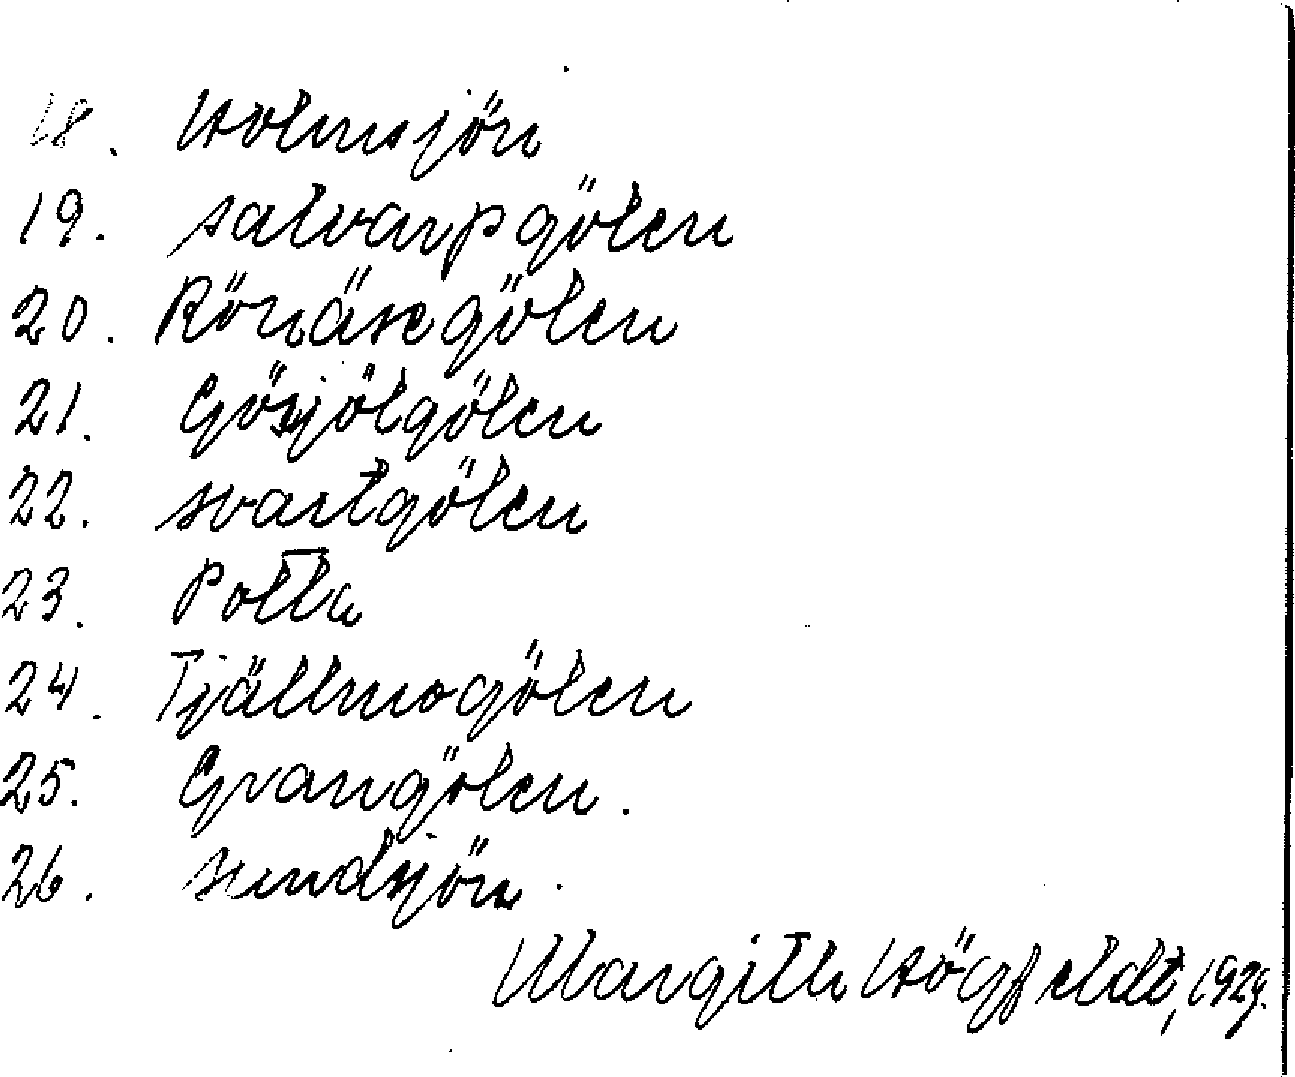 18. Holmsjön
19. salvarpgölen
20. Rönäsegölen
21. Gösjölgölen
22. svartgölen
23. Potta
24. Tjällmogölen
25. Grangölen.
26. sundsjön.
Margith Högfeldt,